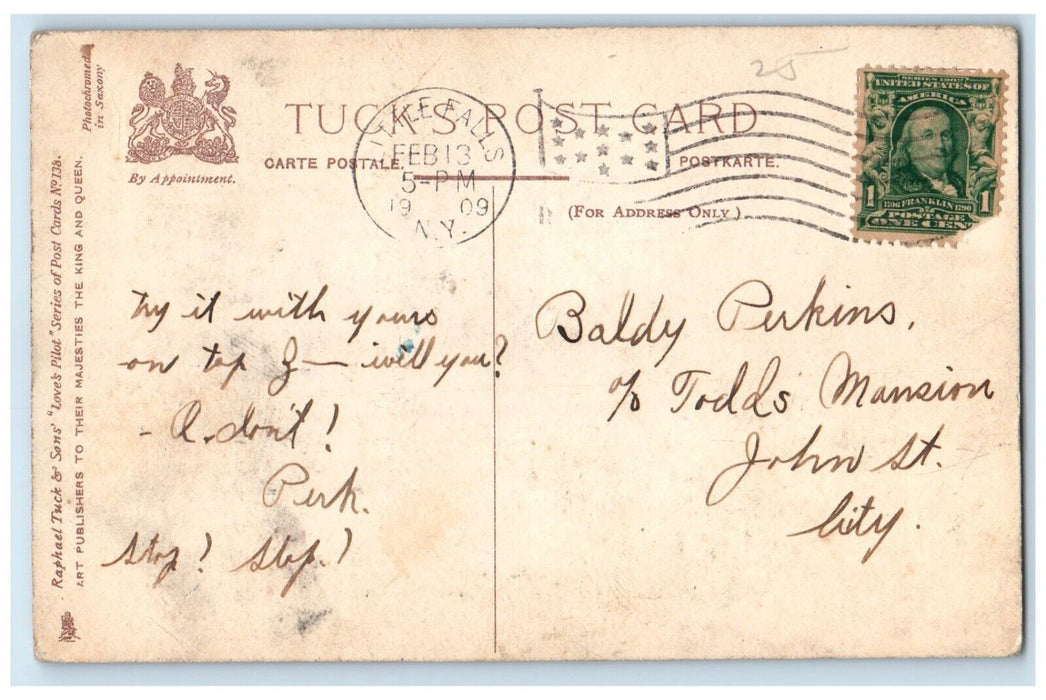 25
Photochromed
in Saxony
By Appointment.
TUCK'S POST CARD
CARTE POSTALE.
POSTKARTE.
(FOR ADDRESS ONLY)
LITTLE FALLS
FEB 13
5-PM
1909
N.Y.
SERIES 1902
UNITED STATES OF
AMERICA
1 FRANKLIN 1790 1
POSTAGE
ONE CENT
Raphael Tuck & Sons' "Love's Pilot" Series of Post Cards No 138.
ART PUBLISHERS TO THEIR MAJESTIES THE KING AND QUEEN.
try it with yours
on top — will you?
- don't!
Perk.
Stop! Stop!
Baldy Perkins,
c/o Todds Mansion
John St.
City.